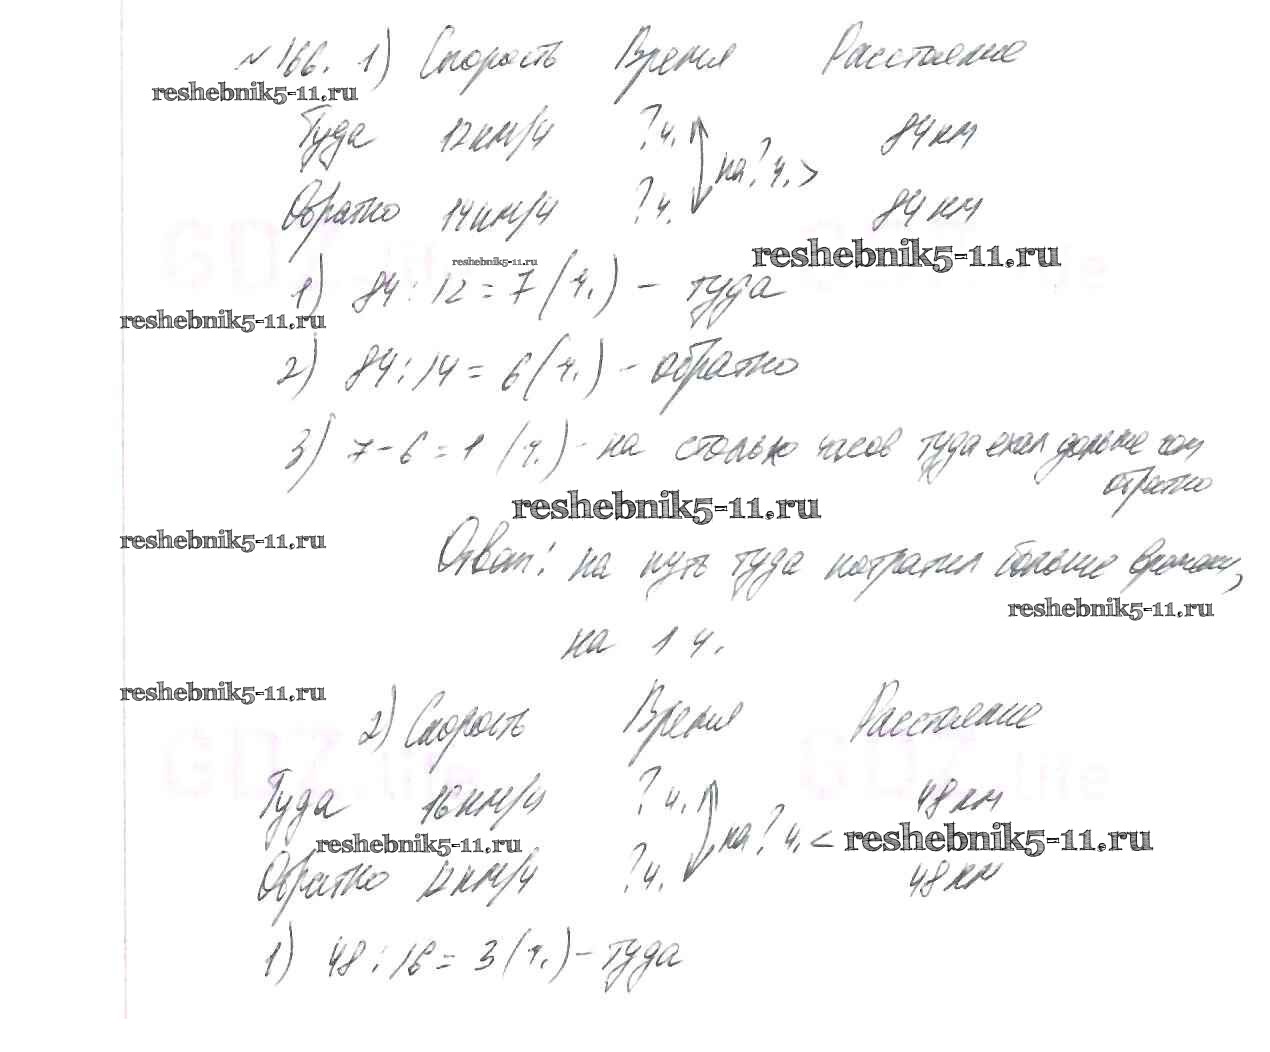 №166. 1) Скорость Время Расстояние
reshebnik5-11.ru
Туда 12км/ч ? ч. 84км
на ? ч. >
Обратно 14км/ч ? ч. 84км
GDZ.life GDZ.life
reshebnik5-11.ru reshebnik5-11.ru
1) 84 : 12 = 7 (ч.) - туда
reshebnik5-11.ru
2) 84 : 14 = 6 (ч.) - обратно
3) 7 - 6 = 1 (ч.) - на столько часов туда ехал дольше чем
обратно
reshebnik5-11.ru
reshebnik5-11.ru
Ответ: на путь туда потратил больше времени,
reshebnik5-11.ru
на 1 ч.
reshebnik5-11.ru
2) Скорость Время Расстояние
GDZ.life GDZ.life
Туда 16км/ч ? ч. 48км
на ? ч. <
reshebnik5-11.ru reshebnik5-11.ru
Обратно 12км/ч ? ч. 48км
1) 48 : 16 = 3 (ч.) - туда